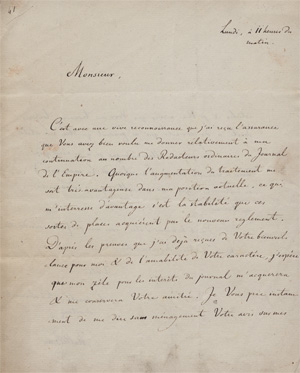 Lundi, à 11 heures du
matin.
Monsieur,
C'est avec une vive reconnaissance que j'ai reçu l'assurance
que Vous avez bien voulu me donner relativement à ma
continuation au nombre des Rédacteurs ordinaires du Journal
de l'Empire. Quoique l'augmentation du traitement me
soit très avantageuse dans ma position actuelle, ce qui
m'intéresse d'avantage c'est la stabilité que ces
sortes de places acquièrent par le nouveau règlement.
D'après les preuves que j'ai déjà reçues de Votre bienveil-
lance pour moi & de l'amabilité de Votre caractère, j'espère
que mon zèle pour les intérêts du journal m'acquerera
& me conservera Votre amitié. Je Vous prie instam-
ment de me dire sans ménagement Votre avis sur mes